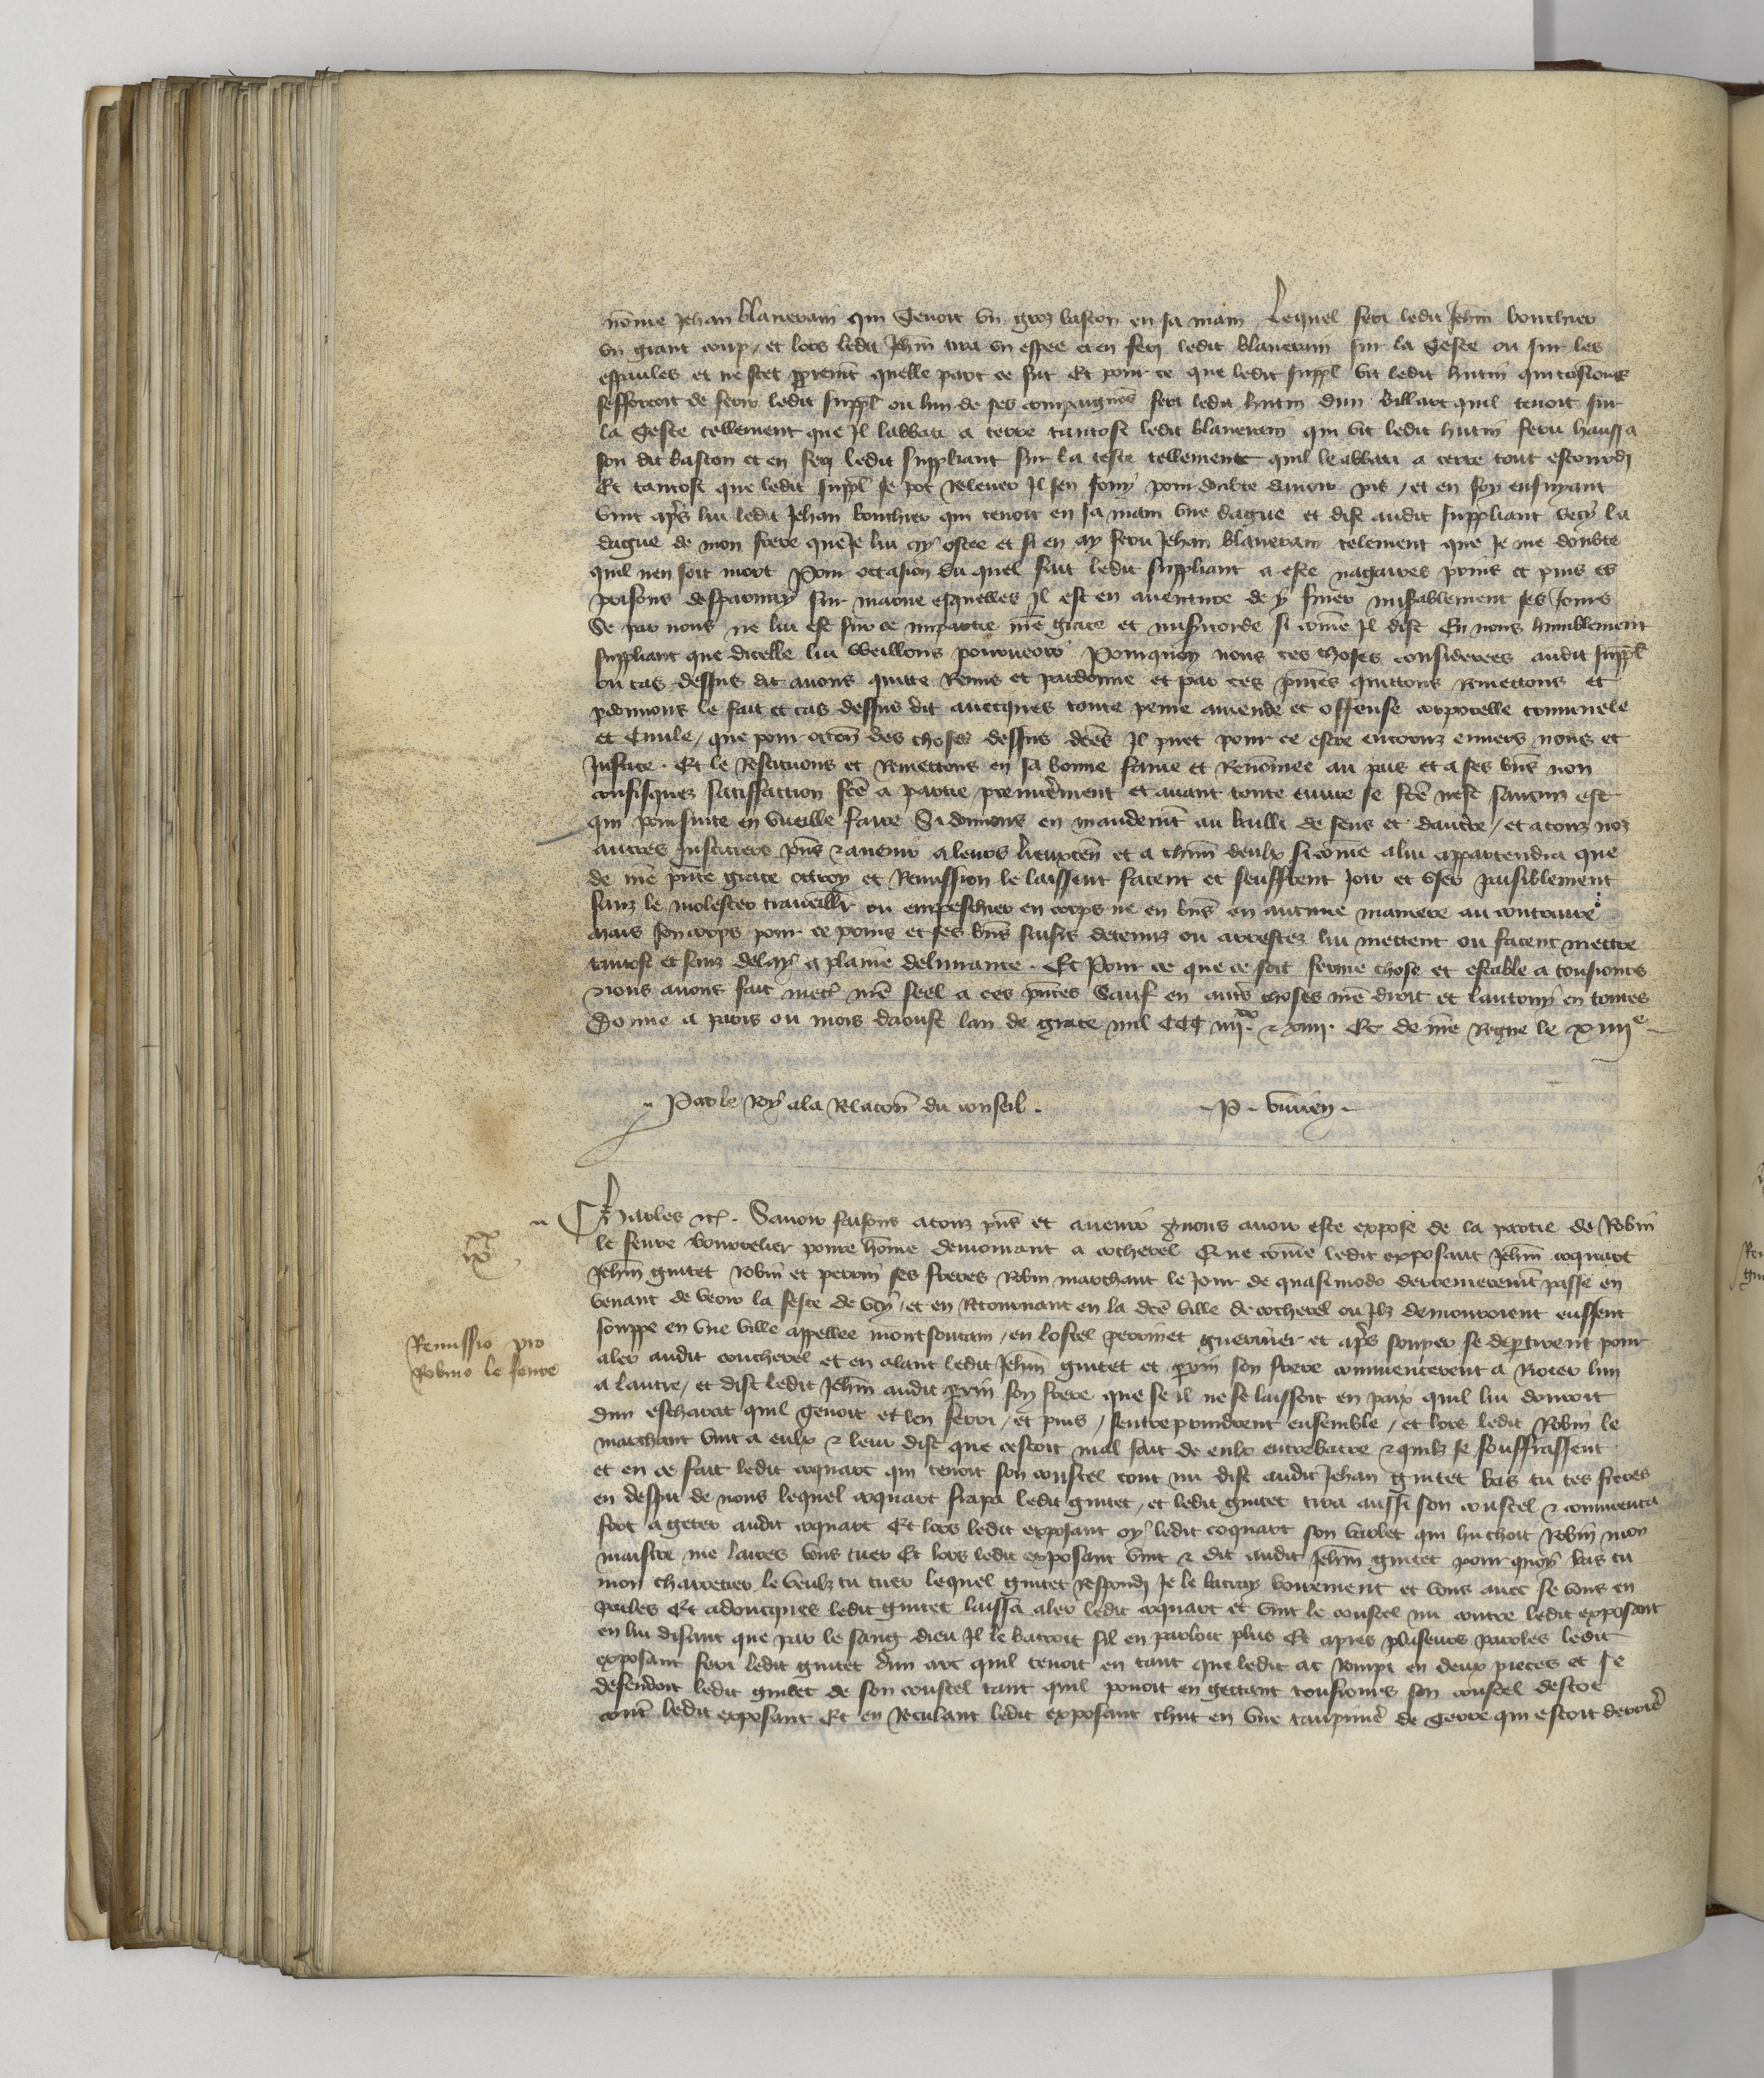 nōme Jehan blaneram qui tenoit un gros baston en sa main Lequel feri ledit Jehn̄ bouchier
un grant coup / et lors ledit Jehn̄ tira un espee et en feri ledit blaneram sur la teste ou sur les
espaules et ne scet ꝓprem̄t quelle part ce fut Et pour ce que ledit suppl̄ vit ledit hutin qui tousiours
sefforcoit de ferir ledit suppl̄ ou lun de ses compaignōs feri ledit hutin dun billart quil tenoit sur
la teste tellement que Il labbati a terre tantost ledit blaneram qui vit ledit hutin feru haussa
son dit baston et en feri ledit suppliant sur la teste tellement quil le abbati a terre tout estourdi
Et tantost que ledit suppl̄ se pot relever Il sen fouy pour doubte davoir pis / et en soy enfuyant
vint apr̄s lui ledit Jehan bouchier qui tenoit en sa main une dague et dist audit suppliant vecy la
dague de mon frere que Je lui ay ostee et si en ay feru Jehan blaneram telement que Je me doubte
quil nen soit mort Pour occasion du quel fait ledit suppliant a este nagaires prins et puis es
prisons desparnay sur marne esquelles Il est en aventure de y finer mis̄ablement ses Jours
Se par nous ne lui est sur ce impartie nr̄e grace et mis̄icorde si cōme Il dist En nous humblement
suppliant que dicelle lui vueillons pourveoir Pourquoy nous ces choses considerees audit suppl̄
ou cas dessus dit avons quitte Remis et pardonne et par ces pn̄tes quittons Remettons et
ꝑdonnons le fait et cas dessus dit avecques toute peine amende et offense corporelle criminele
et Civile / que pour occōn des choses dessus dc̄es Il puet pour ce estre encouruz envers nous et
Justice . Et le Restituons et Remettons en sa bonne fame et Renōmee au pais et a ses bn̄s non
confisquez satisfaction fc̄e a partie premier̄ment et avant toute euvre se fc̄e nest saucun est
qui poursuite en vueille faire Si donnons en mandem̄t au bailli de sens et dauc̄re / et a touz noz
autres Justiciers pn̄s & avenir a leurs lieuxten̄ et a chūn deulx si cōme a lui appartendra que
de nr̄e pn̄te grace ottroy et Remission le laissent facent et seuffrent Joir et user paisiblement
sanz le molester travaillier ou empeschier en corps ne en bn̄s en aucune maniere au contraire
Mais son corps pour ce prins et ses bn̄s saisis detenuz ou arrestez lui mettent ou facent mettre
tantost et sanz delay a plaine delivrance . Et Pour ce que ce soit ferme chose et estable a tousiours
Nous avons fait mettr̄ nr̄e seel a ces pn̄tes Sauf en autr̄s choses nr̄e droit et lautruy en toutes
Donne a paris ou mois daoust lan de grace mil CCC iiijxx & xiiij . Et de nr̄e Regne le xiiije
Par le Roy a la Relacōn du conseil .
P . vivien .
Charles etc . Savoir faisons a touz pn̄s et avenir Q̄ nous avoir este expose de la partie de Robin
le fevre bourrelier povre hōme demourant a cocherel Que cōme ledit exposant Jehn̄ coquart
Jehn̄ guitet robin et perrin ses freres Robin marchant le Jour de quasimodo derrenierem̄t passe en
venant de veoir la feste de vcy / et en Retournant en la dc̄e ville de cocherel ou Ilz demouroient eussent
souppe en une ville appellee montsoutain / en lostel perrinet guernier et apr̄s souper se dep̄tirent pour
aler audit coucherel et en alant ledit Jehn̄ guitet et ꝑrin son frere commencerent a Rioter lun
a lautre / et dist ledit Jehn̄ audit ꝑrin son frere que se il ne se laissoit en paix quil lui donroit
dun escharat quil tenoit et len ferri / et puis / sentreprindrent ensemble / et lors ledit Robin le
marchant vint a eulx & leur dist que cestoit mal fait de eulx entrebatre & quilz se souffrassent
et en ce fait ledit coquart qui tenoit son coustel tout nu dist audit Jehan guitet bas tu tes freres
en despit de nous lequel coquart frapa ledit guitet / et ledit guitet tira aussi son coustel & commenca
fort a geter audit coquart Et lors ledit exposant oy ledit coquart son varlet qui huchoit Robin mon
maistre me laires vous tuer Et lors ledit exposant vint & dit audit Jehn̄ guitet pour quoy bas tu
mon charretier le veulz tu tuer lequel guitet respondi Je le batray voirement et vous avec se vous en
parles Et adoncques ledit guitet laissa aler ledit coquart et vint le coustel nu contre ledit exposant
en lui disant que par le sang dieu Il le batroit sil en parloit plus Et apres pluseurs paroles ledit
exposant feri ledit guitet dun arc quil tenoit en tant que ledit arc rompi en deux pieces et se
defendoit ledit guitet de son coustel tant quil povoit en gettant tousiours son coustel destoc
contr̄ ledit exposant Et en Reculant ledit exposant chut en une taupinier̄ de terre qui estoit derrier̄
xx
ix
Remissio pro
Robino le fevre